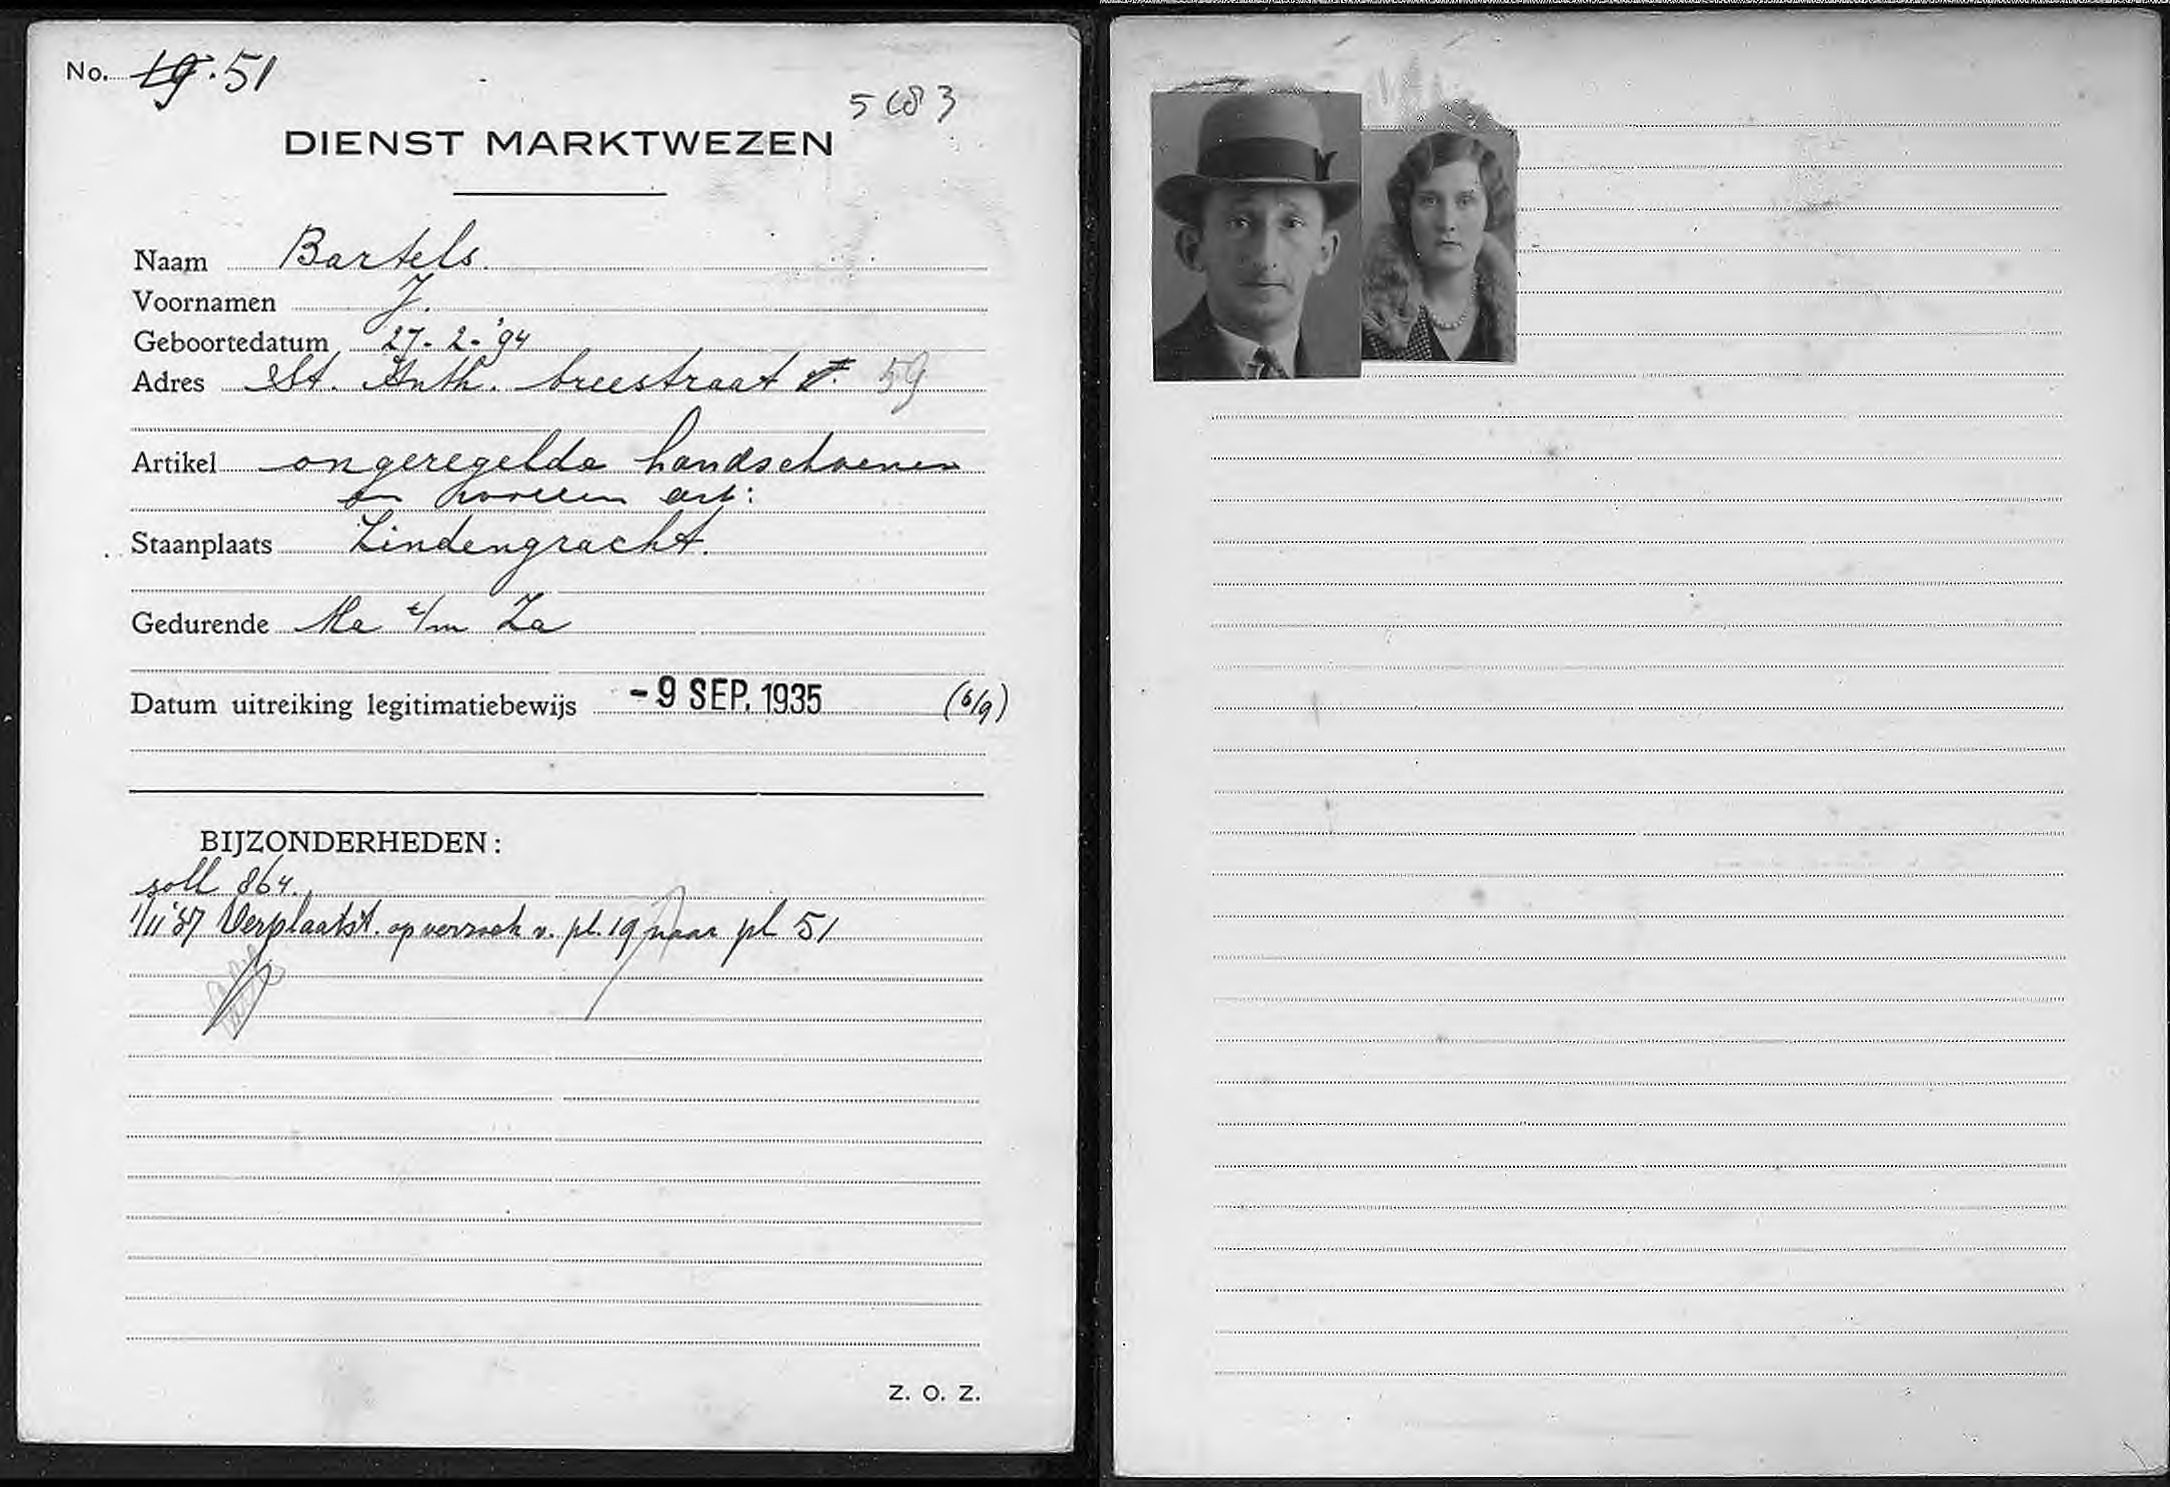 No. 19. 51
5683
DIENST MARKTWEZEN
Naam Bartels.
Voornamen J.
Geboortedatum 27-2-'94
Adres St. Anth. breestraat 59
Artikel ongeregelde handschoenen
en wollen art:
Staanplaats Lindengracht.
Gedurende Ma t/m Za
Datum uitreiking legitimatiebewijs -9 SEP. 1935 (6/9)
BIJZONDERHEDEN:
soll 864.
1/11 '37 Verplaatst. op verzoek v. pl. 19 naar pl 51
Z. O. Z.